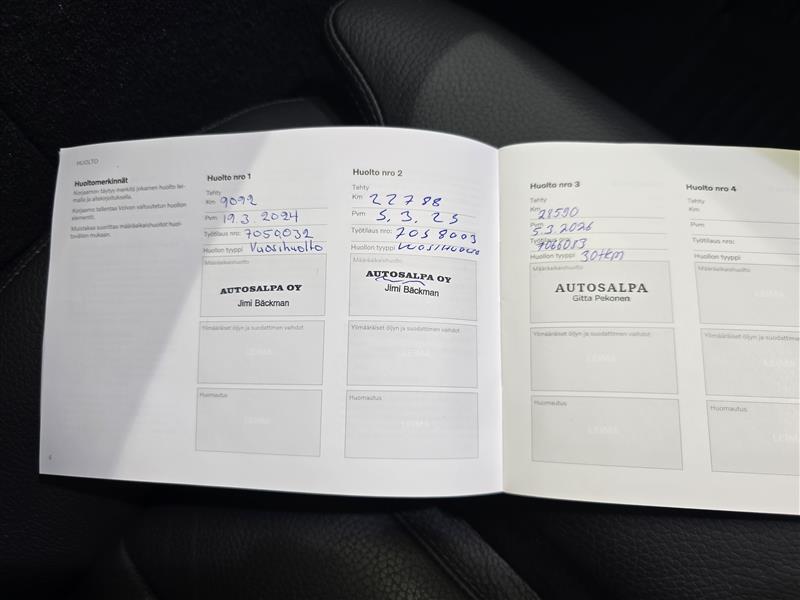 HUOLTO
Huoltomerkinnät
Korjaamon täytyy merkitä jokainen huolto lei-
malla ja allekirjoituksella.
Korjaamo tallentaa Volvon valtuutetun huollon
elementit.
Muistakaa suorittaa määräaikaishuollot huol-
tovälien mukaan.
4
Huolto nro 1
Tehty
Km 9092
Pvm 19.3.2024
Työtilaus nro: 7050032
Huollon tyyppi Vuosihuolto
Määräaikaishuolto
AUTOSALPA OY
Jimi Bäckman
Ylimääräiset öljyn ja suodattimen vaihdot
LEIMA
Huomautus
LEIMA
Huolto nro 2
Tehty
Km 22788
Pvm 5.3.25
Työtilaus nro: 7058003
Huollon tyyppi VUOSIHUOLTO
Määräaikaishuolto
AUTOSALPA OY
Jimi Bäckman
Ylimääräiset öljyn ja suodattimen vaihdot
LEIMA
Huomautus
LEIMA
Huolto nro 3
Tehty
Km 28590
Pvm 5.3.2026
Työtilaus nro: 7066053
Huollon tyyppi 30tkm
Määräaikaishuolto
AUTOSALPA
Gitta Pekonen
Ylimääräiset öljyn ja suodattimen vaihdot
LEIMA
Huomautus
LEIMA
Huolto nro 4
Tehty
Km
Pvm
Työtilaus nro:
Huollon tyyppi
Määräaikaishuolto
LEIMA
Ylimääräiset öljyn ja suodattimen
LEIMA
Huomautus
LEIM